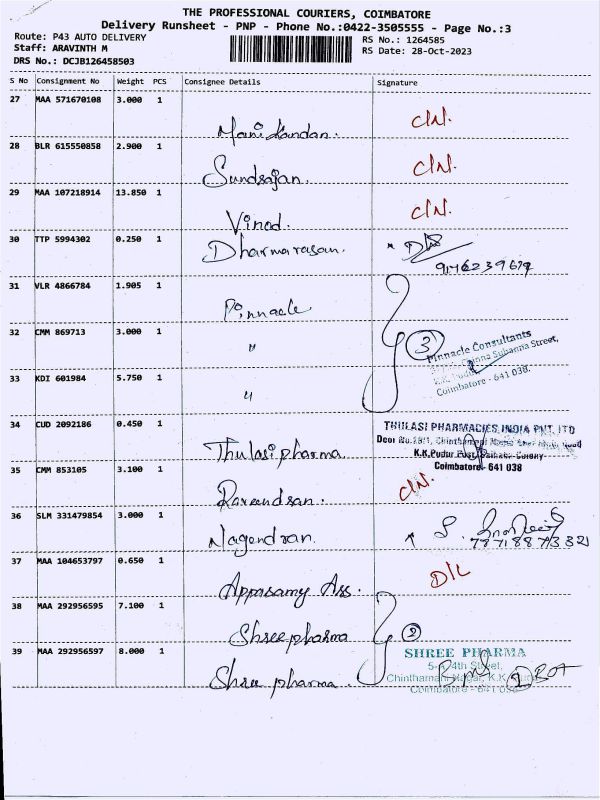 THE PROFESSIONAL COURIERS, COIMBATORE
Delivery Runsheet - PNP - Phone No.:0422-3505555 - Page No.:3
Route: P43 AUTO DELIVERY
RS No.: 1264585
Staff: ARAVINTH M
RS Date: 28-Oct-2023
DRS No.: DCJB126458503
S No Consignment No Weight PCS Consignee Details Signature
27 MAA 571670108 3.000 1
Manikandan. C/N.
28 BLR 615550858 2.900 1
Sundrajan. C/N.
29 MAA 107218914 13.850 1
Vinod. C/N.
30 TTP 5994302 0.250 1
Dharmarasan.
31 VLR 4866784 1.905 1
Pinnacle
32 CMM 869713 3.000 1
" 3
Pinnacle Consultants
Chinna Subanna Street,
K.K. Pudur
Coimbatore - 641 038.
33 KDI 601984 5.750 1
"
34 CUD 2092186 0.450 1
Thulasi pharma
THULASI PHARMACIES INDIA PVT. LTD
Door No.
K.K.Pudur Post, Colony
Coimbatore - 641 038
35 CMM 853105 3.100 1
Raveendran. C/N.
36 SLM 331479854 3.000 1
Nagendran. S.
37 MAA 104653797 0.650 1
Appasamy Ass. D/L
38 MAA 292956595 7.100 1
Shree pharma 2
39 MAA 292956597 8.000 1
Shree pharma.
SHREE PHARMA
4th Street,
Chinthamani Nagar, K.K.
Coimbatore - 641 038